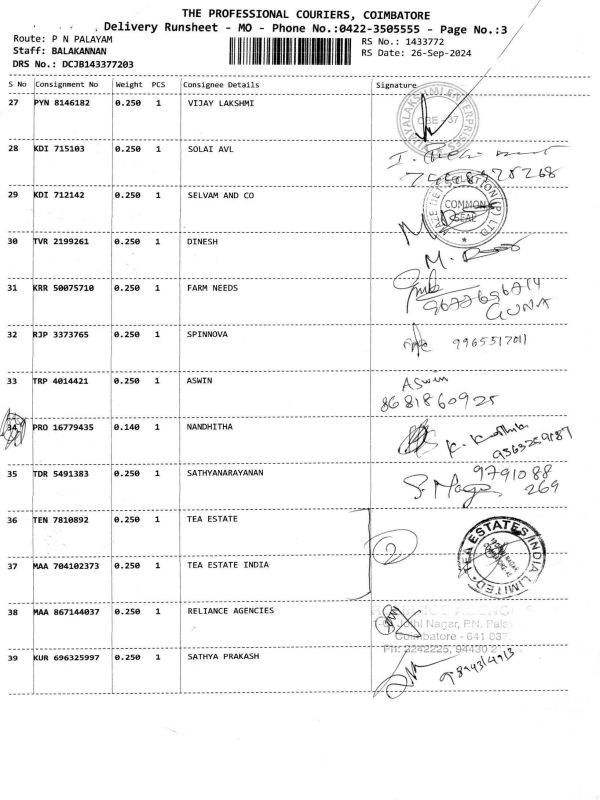 THE PROFESSIONAL COURIERS, COIMBATORE
Delivery Runsheet - MO - Phone No.:0422-3505555 - Page No.:3
Route: P N PALAYAM RS No.: 1433772
Staff: BALAKANNAN RS Date: 26-Sep-2024
DRS No.: DCJB143377203
S No Consignment No Weight PCS Consignee Details Signature
27 PYN 8146182 0.250 1 VIJAY LAKSHMI
VIJAYALAKSHMI ENTERPRISES
CBE - 37
28 KDI 715103 0.250 1 SOLAI AVL
29 KDI 712142 0.250 1 SELVAM AND CO
COMMON
SEAL
30 TVR 2199261 0.250 1 DINESH
31 KRR 50075710 0.250 1 FARM NEEDS
9677656714
GUNA
32 RJP 3373765 0.250 1 SPINNOVA
9965317011
33 TRP 4014421 0.250 1 ASWIN
Aswin
8681860925
34 PRO 16779435 0.140 1 NANDHITHA
35 TDR 5491383 0.250 1 SATHYANARAYANAN
9791088
269
36 TEN 7810892 0.250 1 TEA ESTATE
2
TEA ESTATES INDIA LIMITED
37 MAA 704102373 0.250 1 TEA ESTATE INDIA
38 MAA 867144037 0.250 1 RELIANCE AGENCIES
Nagar, P.N. Palay
Coimbatore - 641 037
39 KUR 696325997 0.250 1 SATHYA PRAKASH